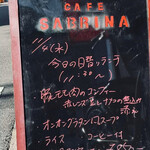 CAFE
SABRINA
11/9(水)
今日の日替ランチ
11:30〜
豚もも肉のコンフィー
赤レンズ豆とナスの煮込み
添え
オニオングラタンスープ
・ライス コーヒー付